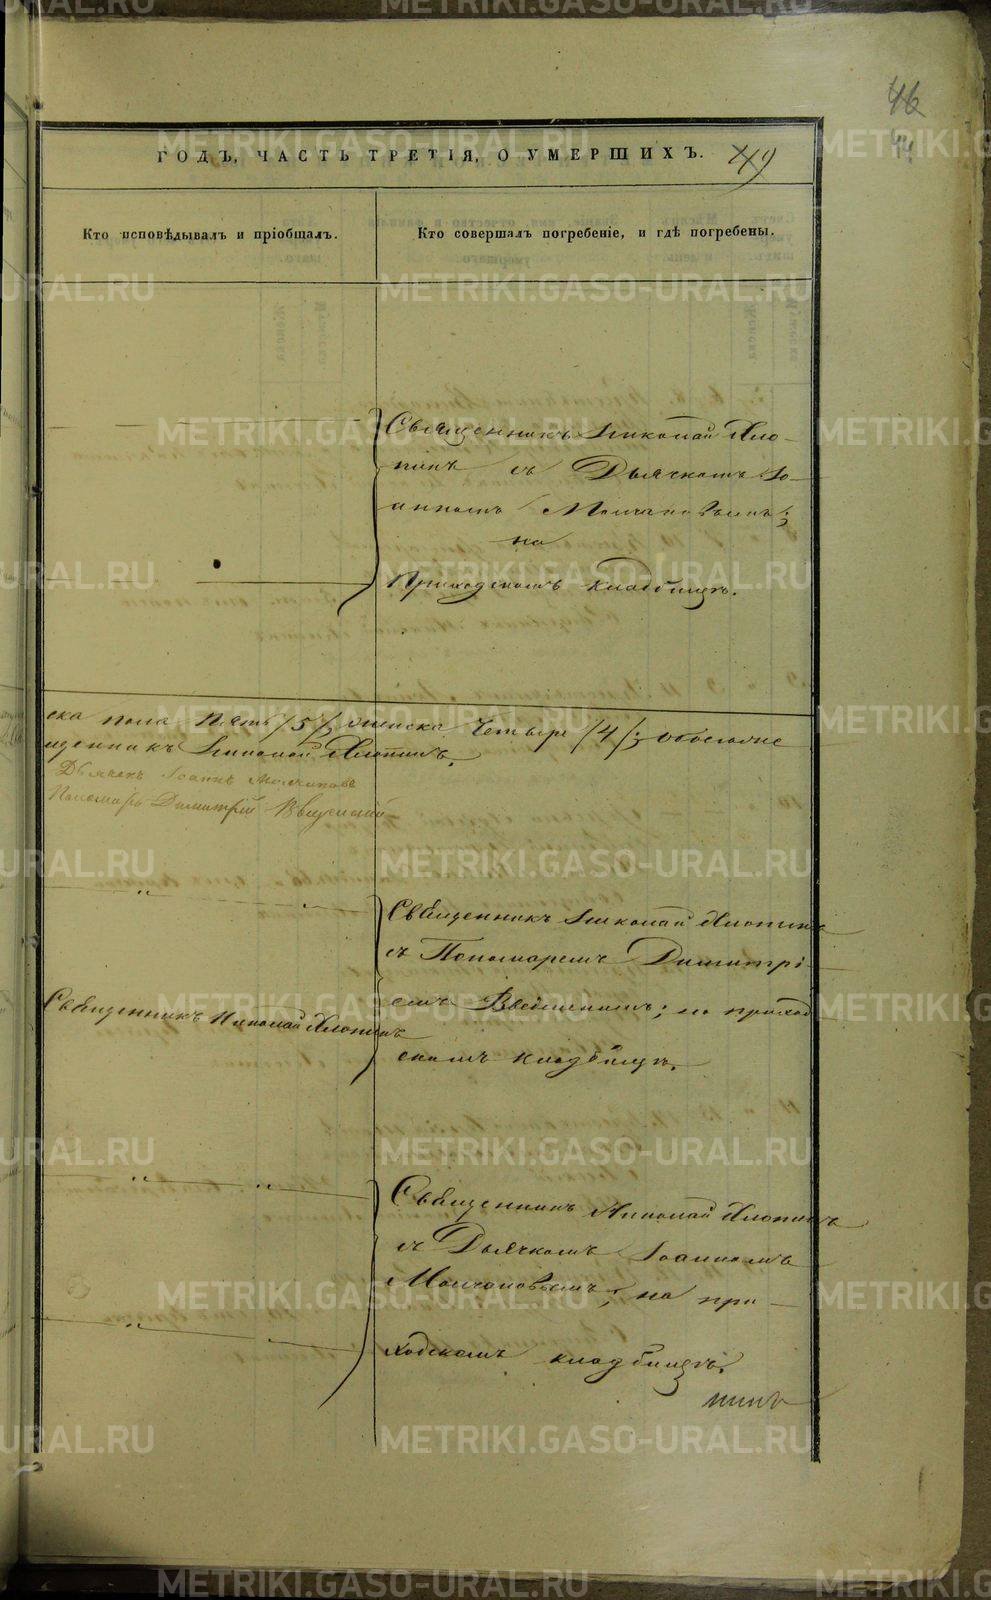 46
ГОДЪ, ЧАСТЬ ТРЕТІЯ, О УМЕРШИХЪ. 49
Кто исповѣдывалъ и пріобщалъ.
Кто совершалъ погребеніе, и гдѣ погребены.
Священникъ Николай Хло-
пинъ съ Дьячкомъ Іо-
анномъ Молчановымъ;
на
Приходскомъ кладбищѣ.
ска пола Пять /5/, женска Четыре /4/; обоего
щенникъ Николай Хлопинъ.
Дьячекъ Іоаннъ Молчановъ
Пономарь Димитрій
Священникъ Николай Хлопинъ
съ Пономаремъ Димитрі-
емъ Введенскимъ; на приход
скомъ кладбищѣ.
Священникъ Николай Хлопинъ
Священникъ Николай Хлопинъ
съ Дьячкомъ Іоанномъ
Молчановымъ; на при-
ходскомъ кладбищѣ.
METRIKI.GASO-URAL.RU